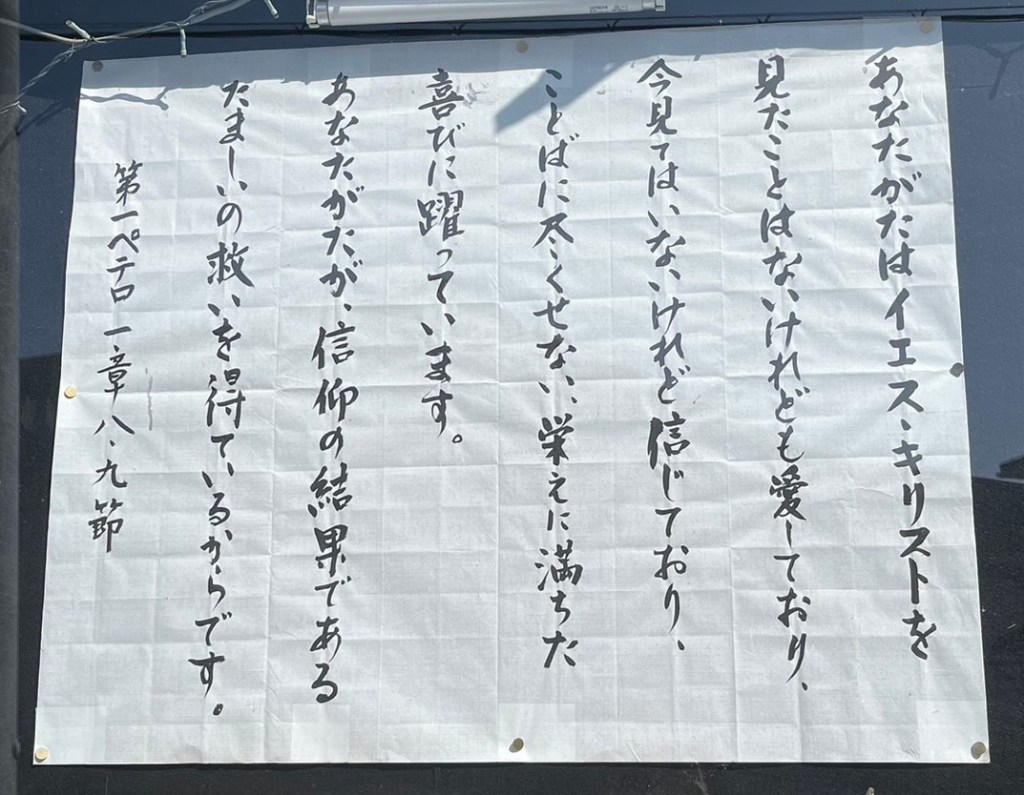 あなたがたはイエス・キリストを
見たことはないけれども愛しており、
今見てはいないけれど信じており、
ことばに尽くせない、栄えに満ちた
喜びに躍っています。
あなたがたが、信仰の結果である
たましいの救いを得ているからです。
第一ペテロ 一章八・九節